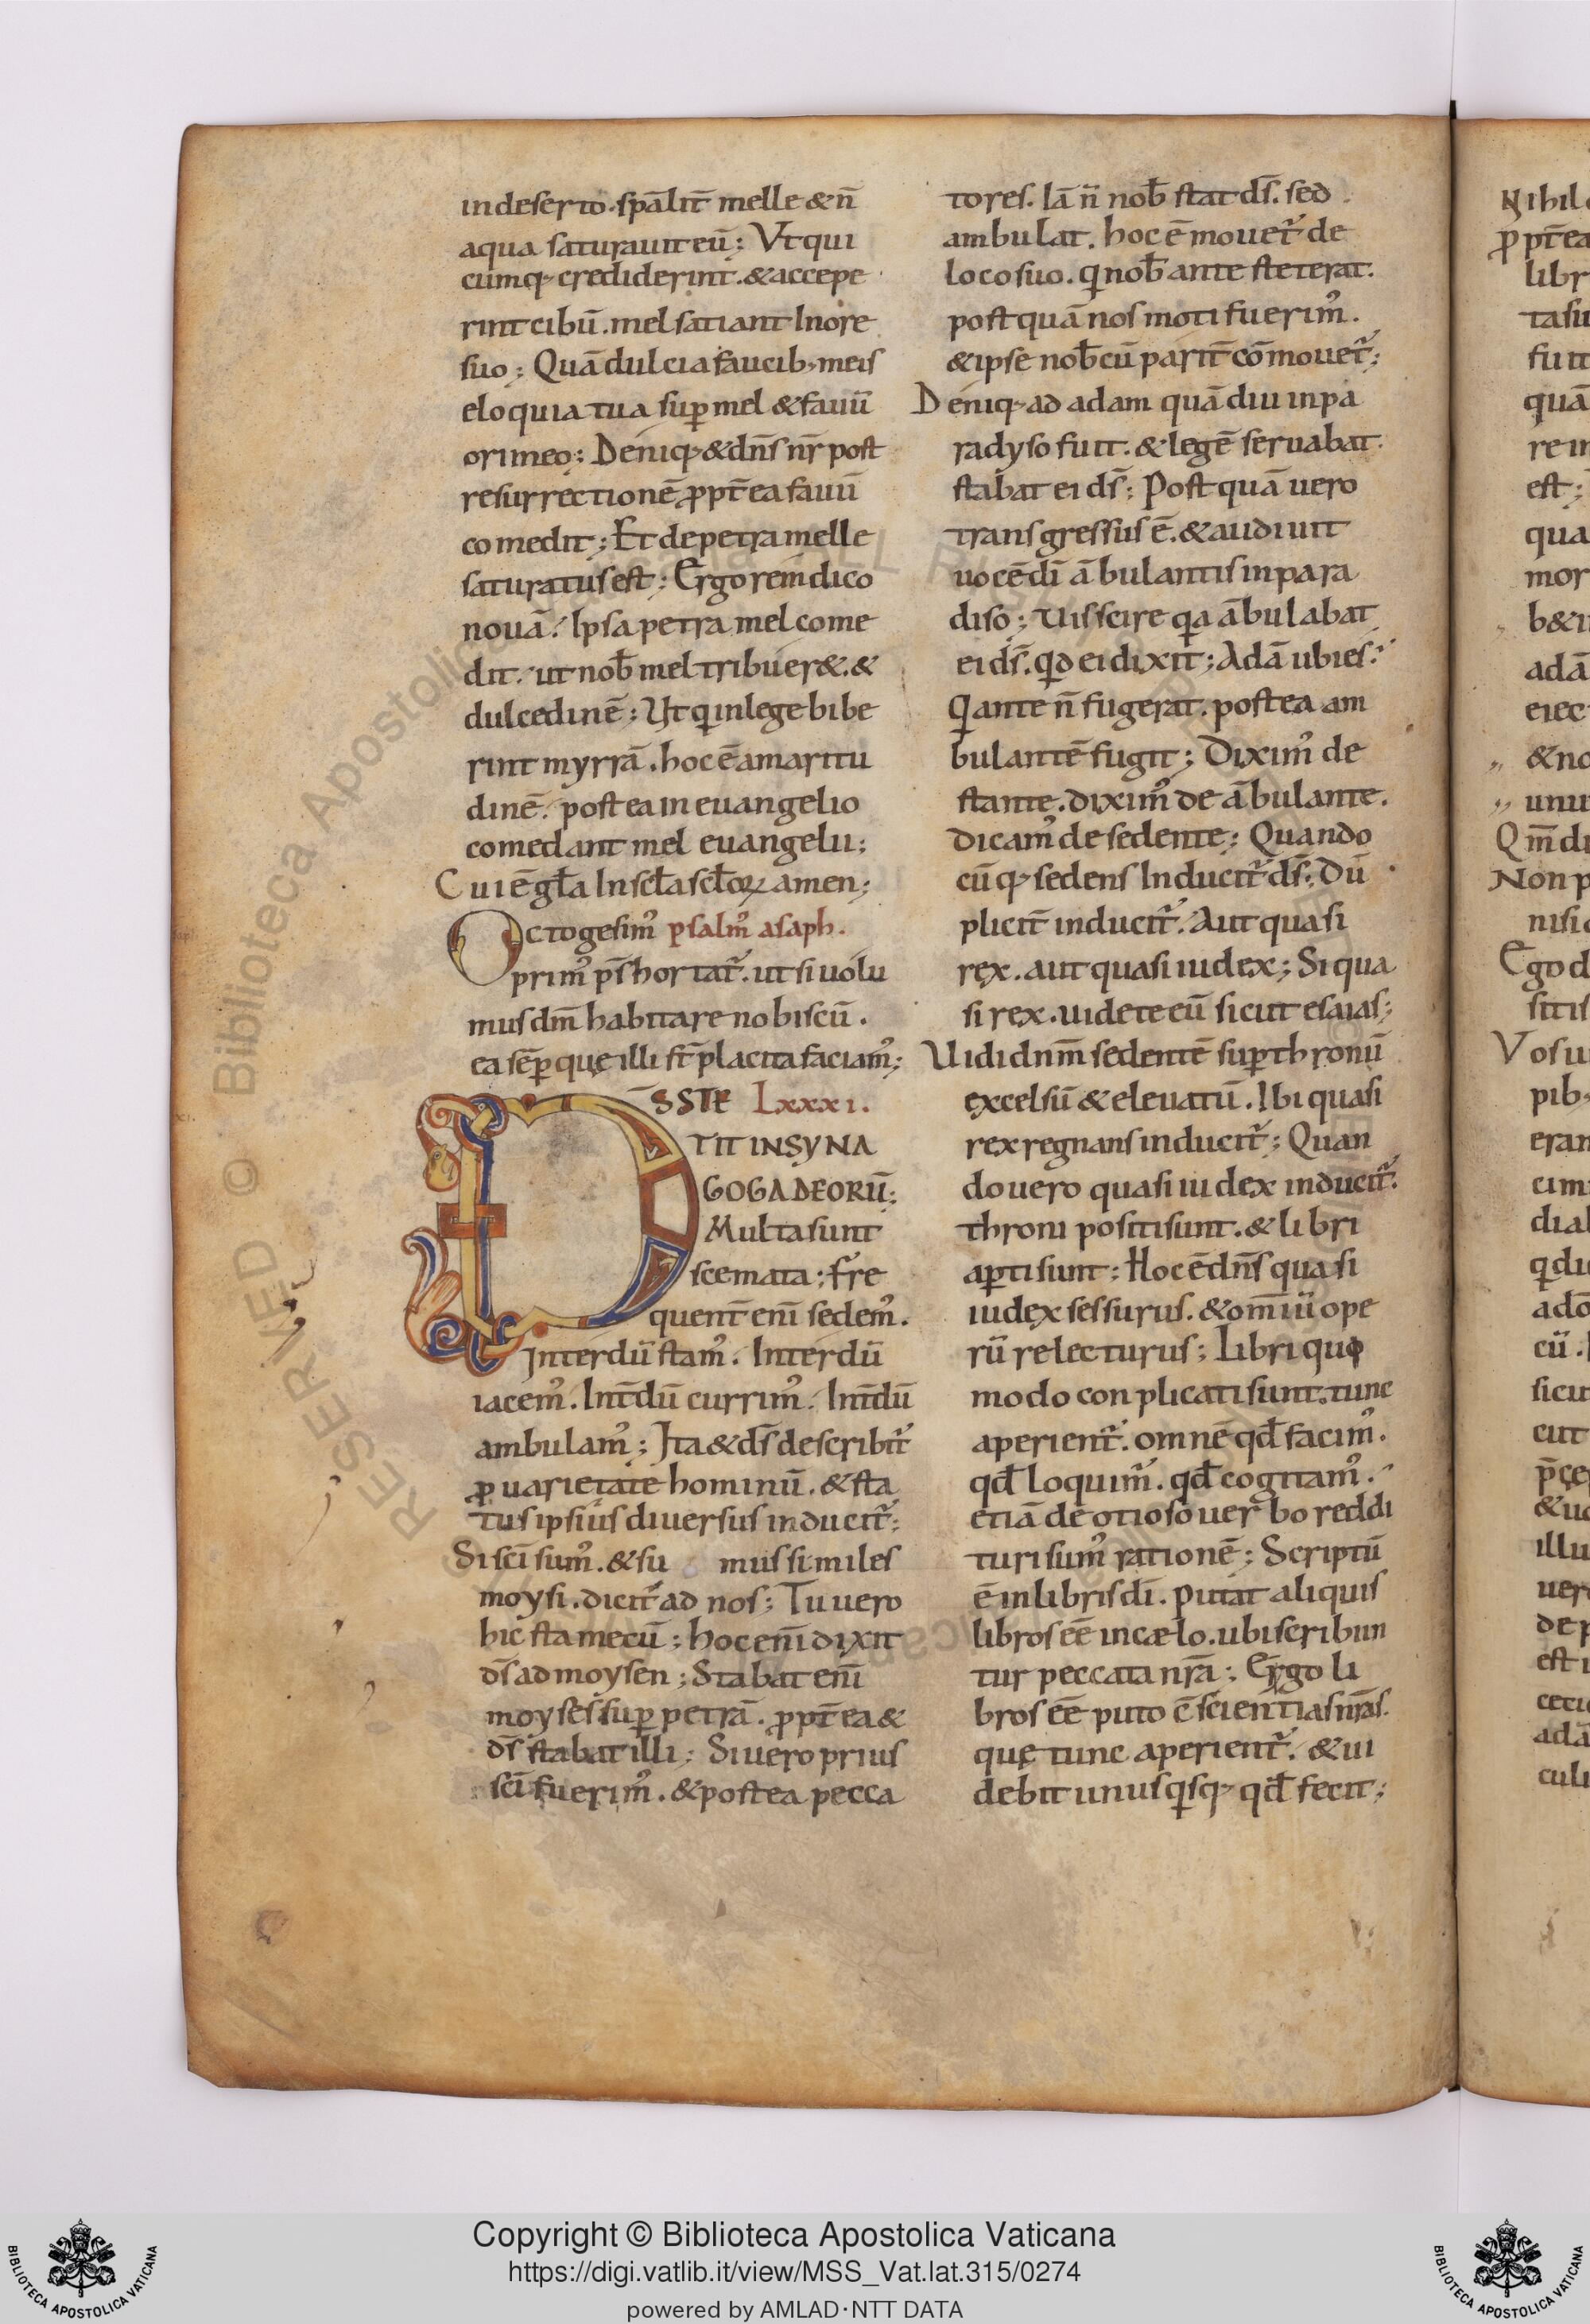 in deserto. spāliť melle & n̄
aqua saturauit eū; Vt qui
cumq; crediderint. & accepe
rint cibū. mel satiant In ore
suo; Quā dulcia faucib; meis
eloquia tua sup mel & fauū
ori meo; Deniq; & dn̄s nr̄ post
resurrectionē ꝓpt̄ea fauū
comedit; Et de petra melle
saturatus est; Ergo rem dico
nouā. Ipsa petra mel come
dit. ut nob̄ mel tribuer&. &
dulcedinē; Ut q̇ in lege bibe
rint myrrā. hoc ē amaritu
dinē. postea in euangelio
comedant mel euangelii;
Cui ē gl̄a In scl̄a scl̄oꝝ amen;
Octogesim᾽ psalm᾽ asaph.
prim᾽ p̄s hortat᷑. ut si uolu
mus dm̄ habitare nobiscū.
ea sēp quę illi s̄t placita faciam᾽;
D̄S STE LXXXI.
TIT IN SYNA
GOGA DEORŪ;
Multa sunt
scemata; fr̄e
quent̄ eni᷑ sedem᾽.
Interdū stam᾽. Interdū
iacem᾽. Int̄dū currim᾽. Int̄dū
ambulam᾽; Ita & ds̄ describit᷑
ꝓ uarietate hominū. & sta
tus ipsius diuersus inducit᷑;
Si sc̄i sum᾽. & su mus similes
moysi. dicit᷑ ad nos; Tu uero
hic sta mecū; hoc eni᷑ dixit
ds̄ ad moysen; Stabat eni᷑
moyses sup petrā. ꝓpt̄ea &
ds̄ stabat illi; Si uero prius
sc̄i fuerim᾽. & postea pecca
tores. Iā n̄ nob̄ stat ds̄. sed
ambulat. hoc ē mouet᷑ de
loco suo. q̇ nob̄ ante steterat.
postquā nos moti fuerim᾽.
& ipse nob̄cū parit̄ cōmouet᷑;
Deniq; ad adam quādiu in pa
radyso fuit. & legē seruabat.
stabat ei ds̄; Postquā uero
transgressus ē. & audiuit
uocē dī ābulantis in para
diso; Uis scire q̇a ābulabat
ei ds̄. q̇d ei dixit; Adā ubi es.
Q̇ ante n̄ fugerat. postea am
bulantē fugit; Dixim᾽ de
stante. dixim᾽ de ābulante.
dicam᾽ de sedente; Quando
cūq; sedens Inducit᷑ ds̄; Du
plicit̄ inducit᷑. Aut quasi
rex. aut quasi iudex; Si qua
si rex. uidete eū sicut esaias;
Uidi dnm̄ sedentē sup thronū
excelsū & eleuatū. Ibi quasi
rex regnans inducit᷑; Quan
do uero quasi iudex inducit᷑.
throni positi sunt. & libri
apti sunt; Hoc ē dn̄s quasi
iudex sessurus. & om̄iū ope
rū relecturus; Libri quo
modo conplicati sunt. tunc
aperient᷑. omnē qd̄ facim᾽.
qd̄ loquim᾽. qd̄ cogitam᾽.
etiā de otioso uerbo reddi
turi sum᾽ rationē; Scriptū
ē in libris dī. putat aliquis
libros eē in cælo. ubi scribun
tur peccata nr̄a; Ergo li
bros eē puto c̄scientias nr̄as.
quę tunc aperient᷑. & ui
debit unusq̇sq; qd̄ fecit;
Nihil
ꝓpt̄ea
Copyright © Biblioteca Apostolica Vaticana
https://digi.vatlib.it/view/MSS_Vat.lat.315/0274
powered by AMLAD·NTT DATA
BIBLIOTECA APOSTOLICA VATICANA
BIBLIOTECA APOSTOLICA VATICANA